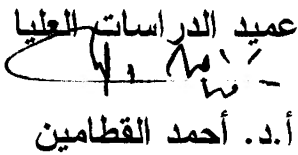 عميد الدراسات العليا
أ.د. أحمد القطامين